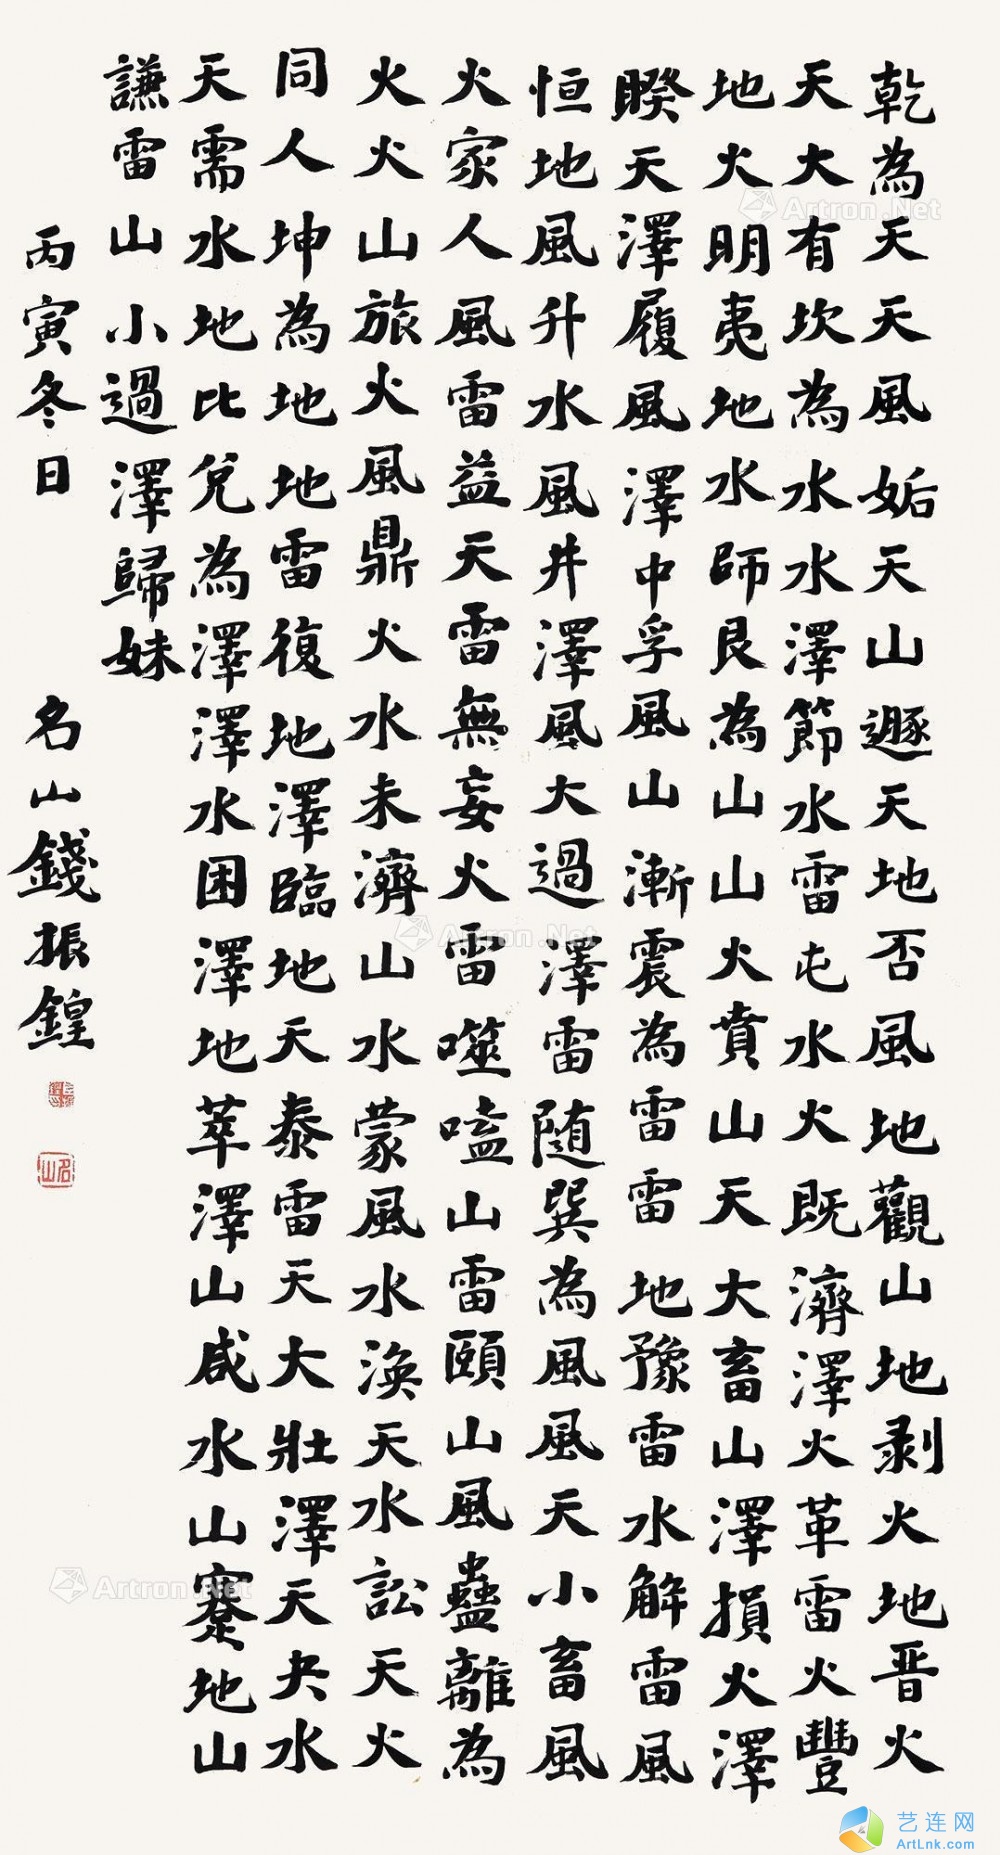 乾為天天風姤天山遯天地否風地觀山地剥火地晋火
天大有坎為水水澤節水雷屯水火既濟澤火革雷火豐
地火明夷地水師艮為山山火賁山天大畜山澤損火澤
睽天澤履風澤中孚風山漸震為雷雷地豫雷水解雷風
恒地風升水風井澤風大過澤雷随巽為風風天小畜風
火家人風雷益天雷無妄火雷噬嗑山雷頤山風蠱離為
火火山旅火風鼎火水未濟山水蒙風水渙天水訟天火
同人坤為地地雷復地澤臨地天泰雷天大壯澤天夬水
天需水地比兌為澤澤水困澤地萃澤山咸水山蹇地山
謙雷山小過澤歸妹
丙寅冬日 名山錢振鍠
名山
Artron.Net
Artron.Net
Artron.Net
艺连网
ArtLnk.com